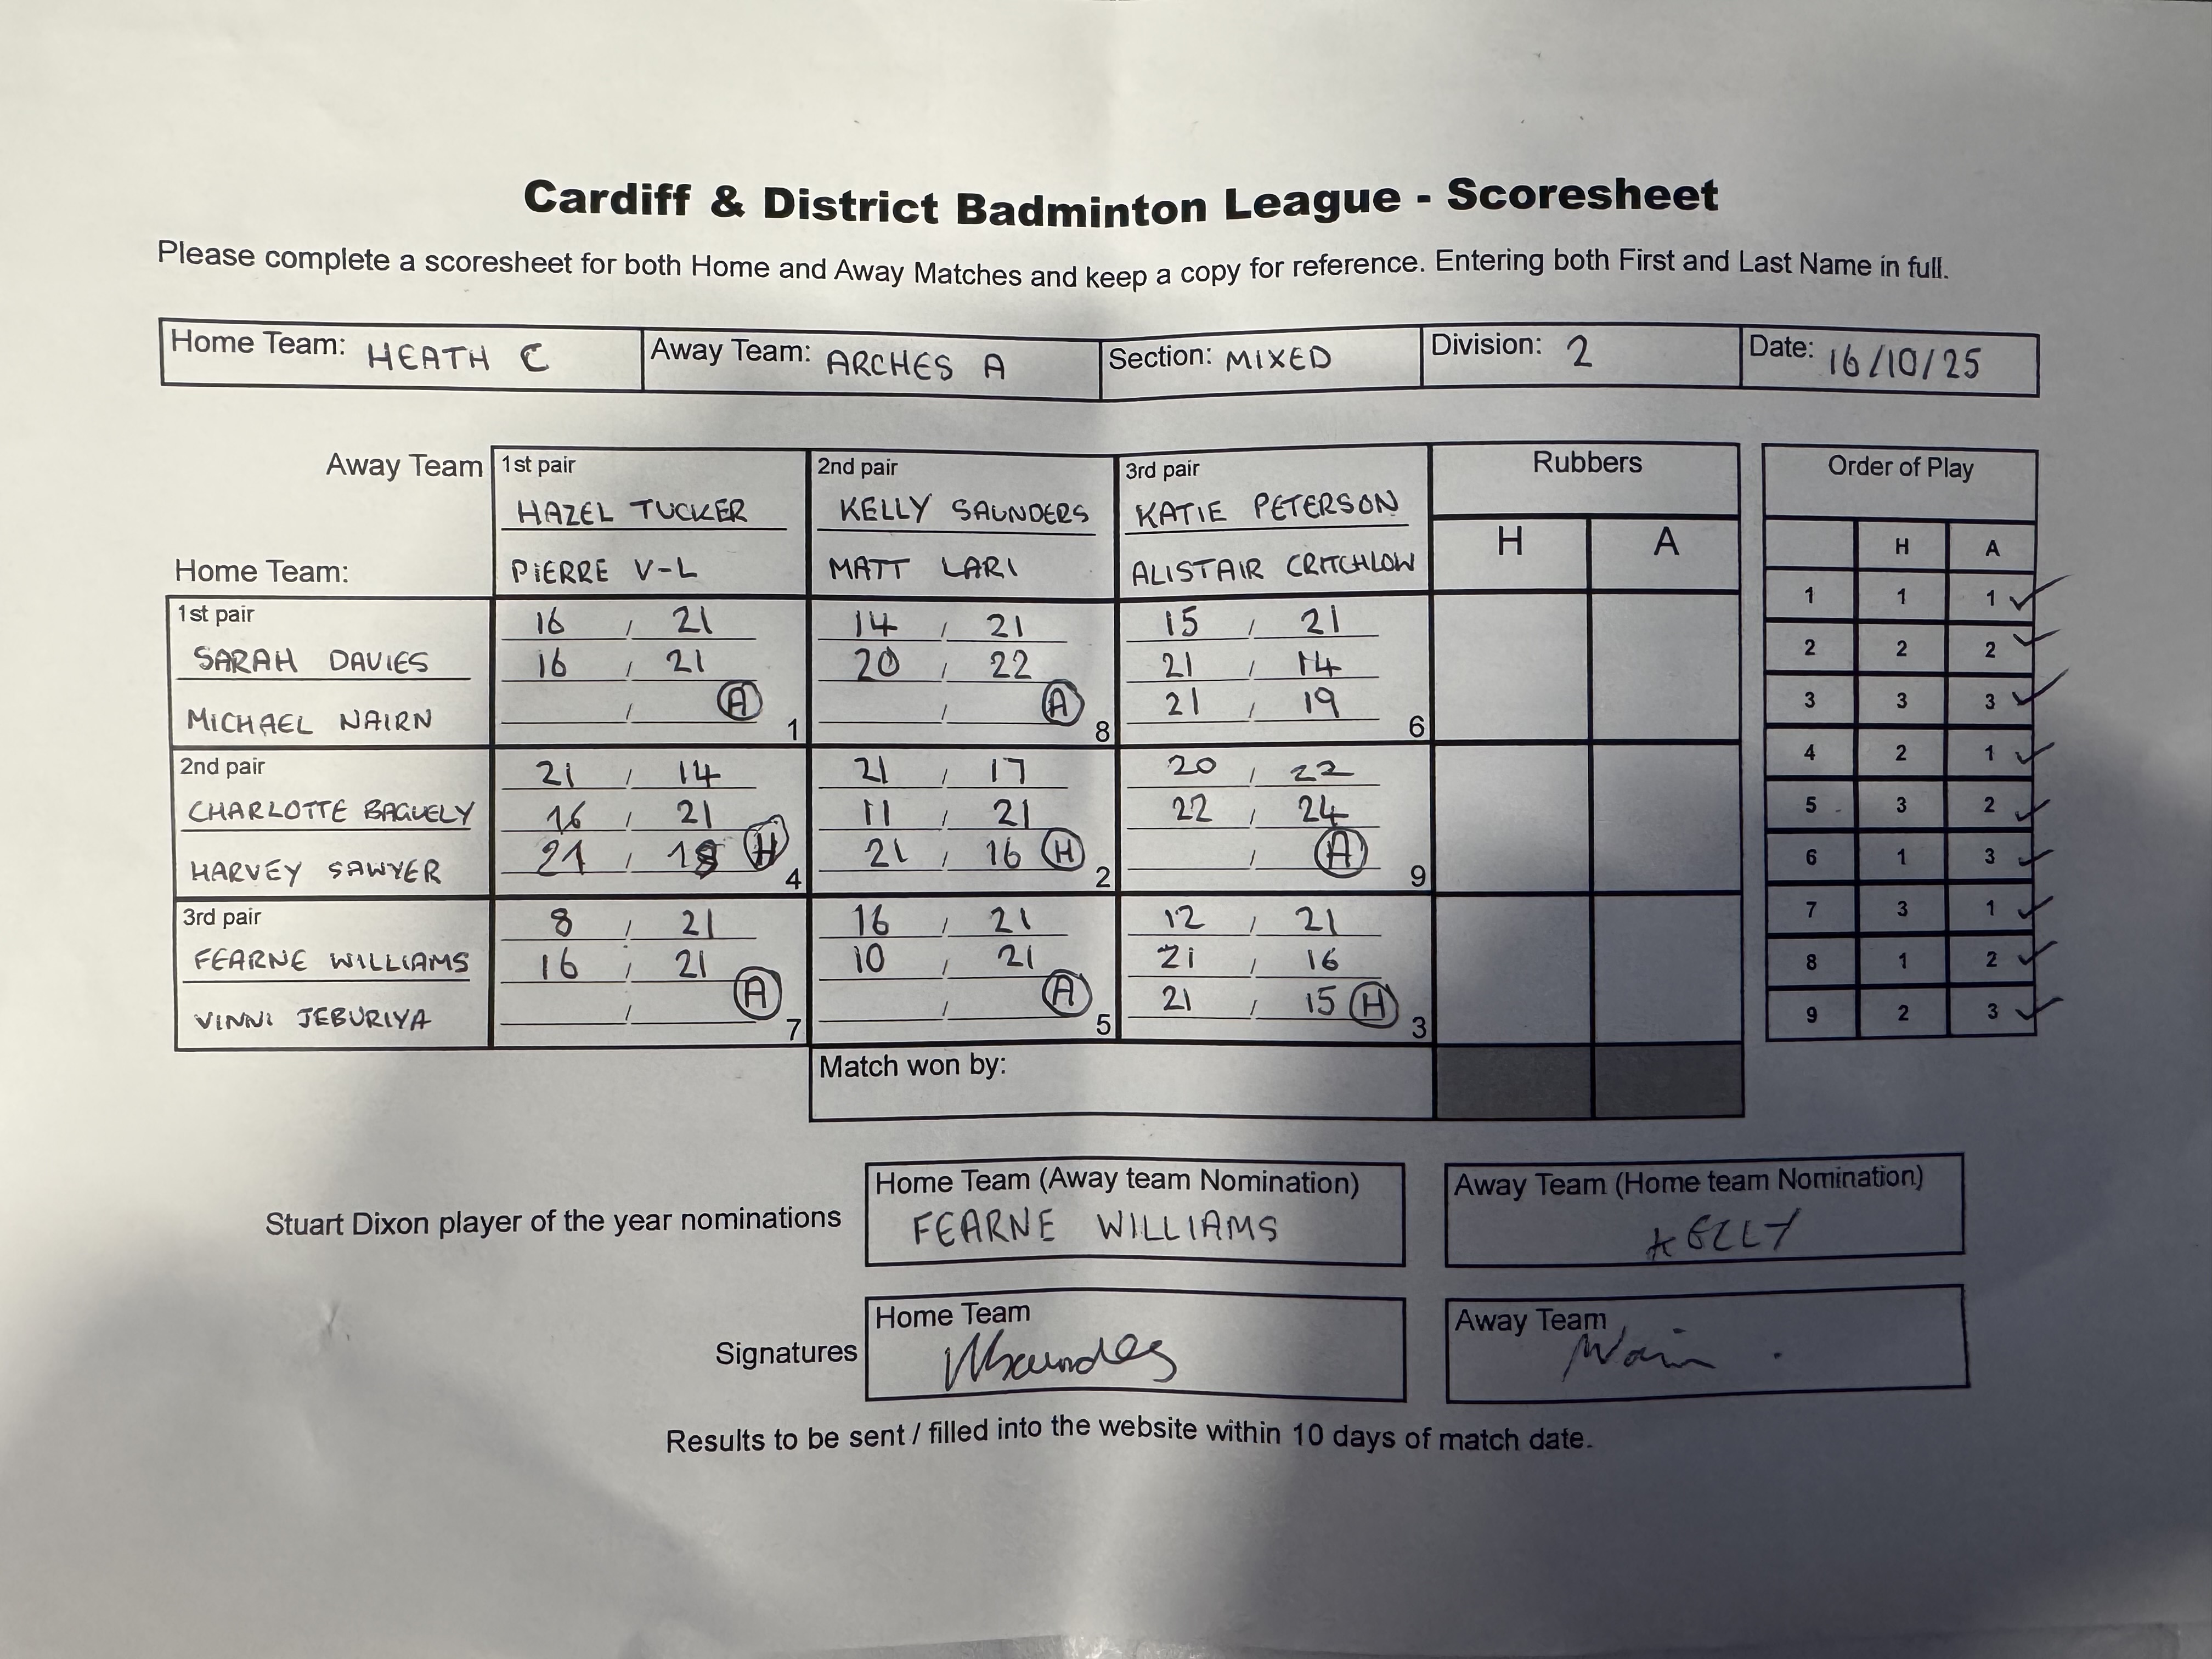 Cardiff & District Badminton League - Scoresheet
Please complete a scoresheet for both Home and Away Matches and keep a copy for reference. Entering both First and Last Name in full.
Home Team: HEATH C Away Team: ARCHES A Section: MIXED Division: 2 Date: 16/10/25
Away Team 1st pair 2nd pair 3rd pair Rubbers Order of Play
HAZEL TUCKER KELLY SAUNDERS KATIE PETERSON
H A H A
Home Team: PIERRE V-L MATT LARI ALISTAIR CRITCHLOW
1st pair 16 / 21 14 / 21 15 / 21 1 1 1 ✓
SARAH DAVIES 16 / 21 20 / 22 21 / 14 2 2 2 ✓
MICHAEL NAIRN / A 1 / A 8 21 / 19 6 3 3 3 ✓
2nd pair 21 / 14 21 / 17 20 / 22 4 2 1 ✓
CHARLOTTE BAGUELY 16 / 21 11 / 21 22 / 24 5 3 2 ✓
HARVEY SAWYER 21 / H 4 21 / 16 H 2 / A 9 6 1 3 ✓
3rd pair 8 / 21 16 / 21 12 / 21 7 3 1 ✓
FEARNE WILLIAMS 16 / 21 10 / 21 21 / 16 8 1 2 ✓
VINNI JEBURIYA / A 7 / A 5 21 / 15 H 3 9 2 3 ✓
Match won by:
Stuart Dixon player of the year nominations
Home Team (Away team Nomination)
FEARNE WILLIAMS
Away Team (Home team Nomination)
KELLY
Signatures
Home Team
Away Team
Results to be sent / filled into the website within 10 days of match date.